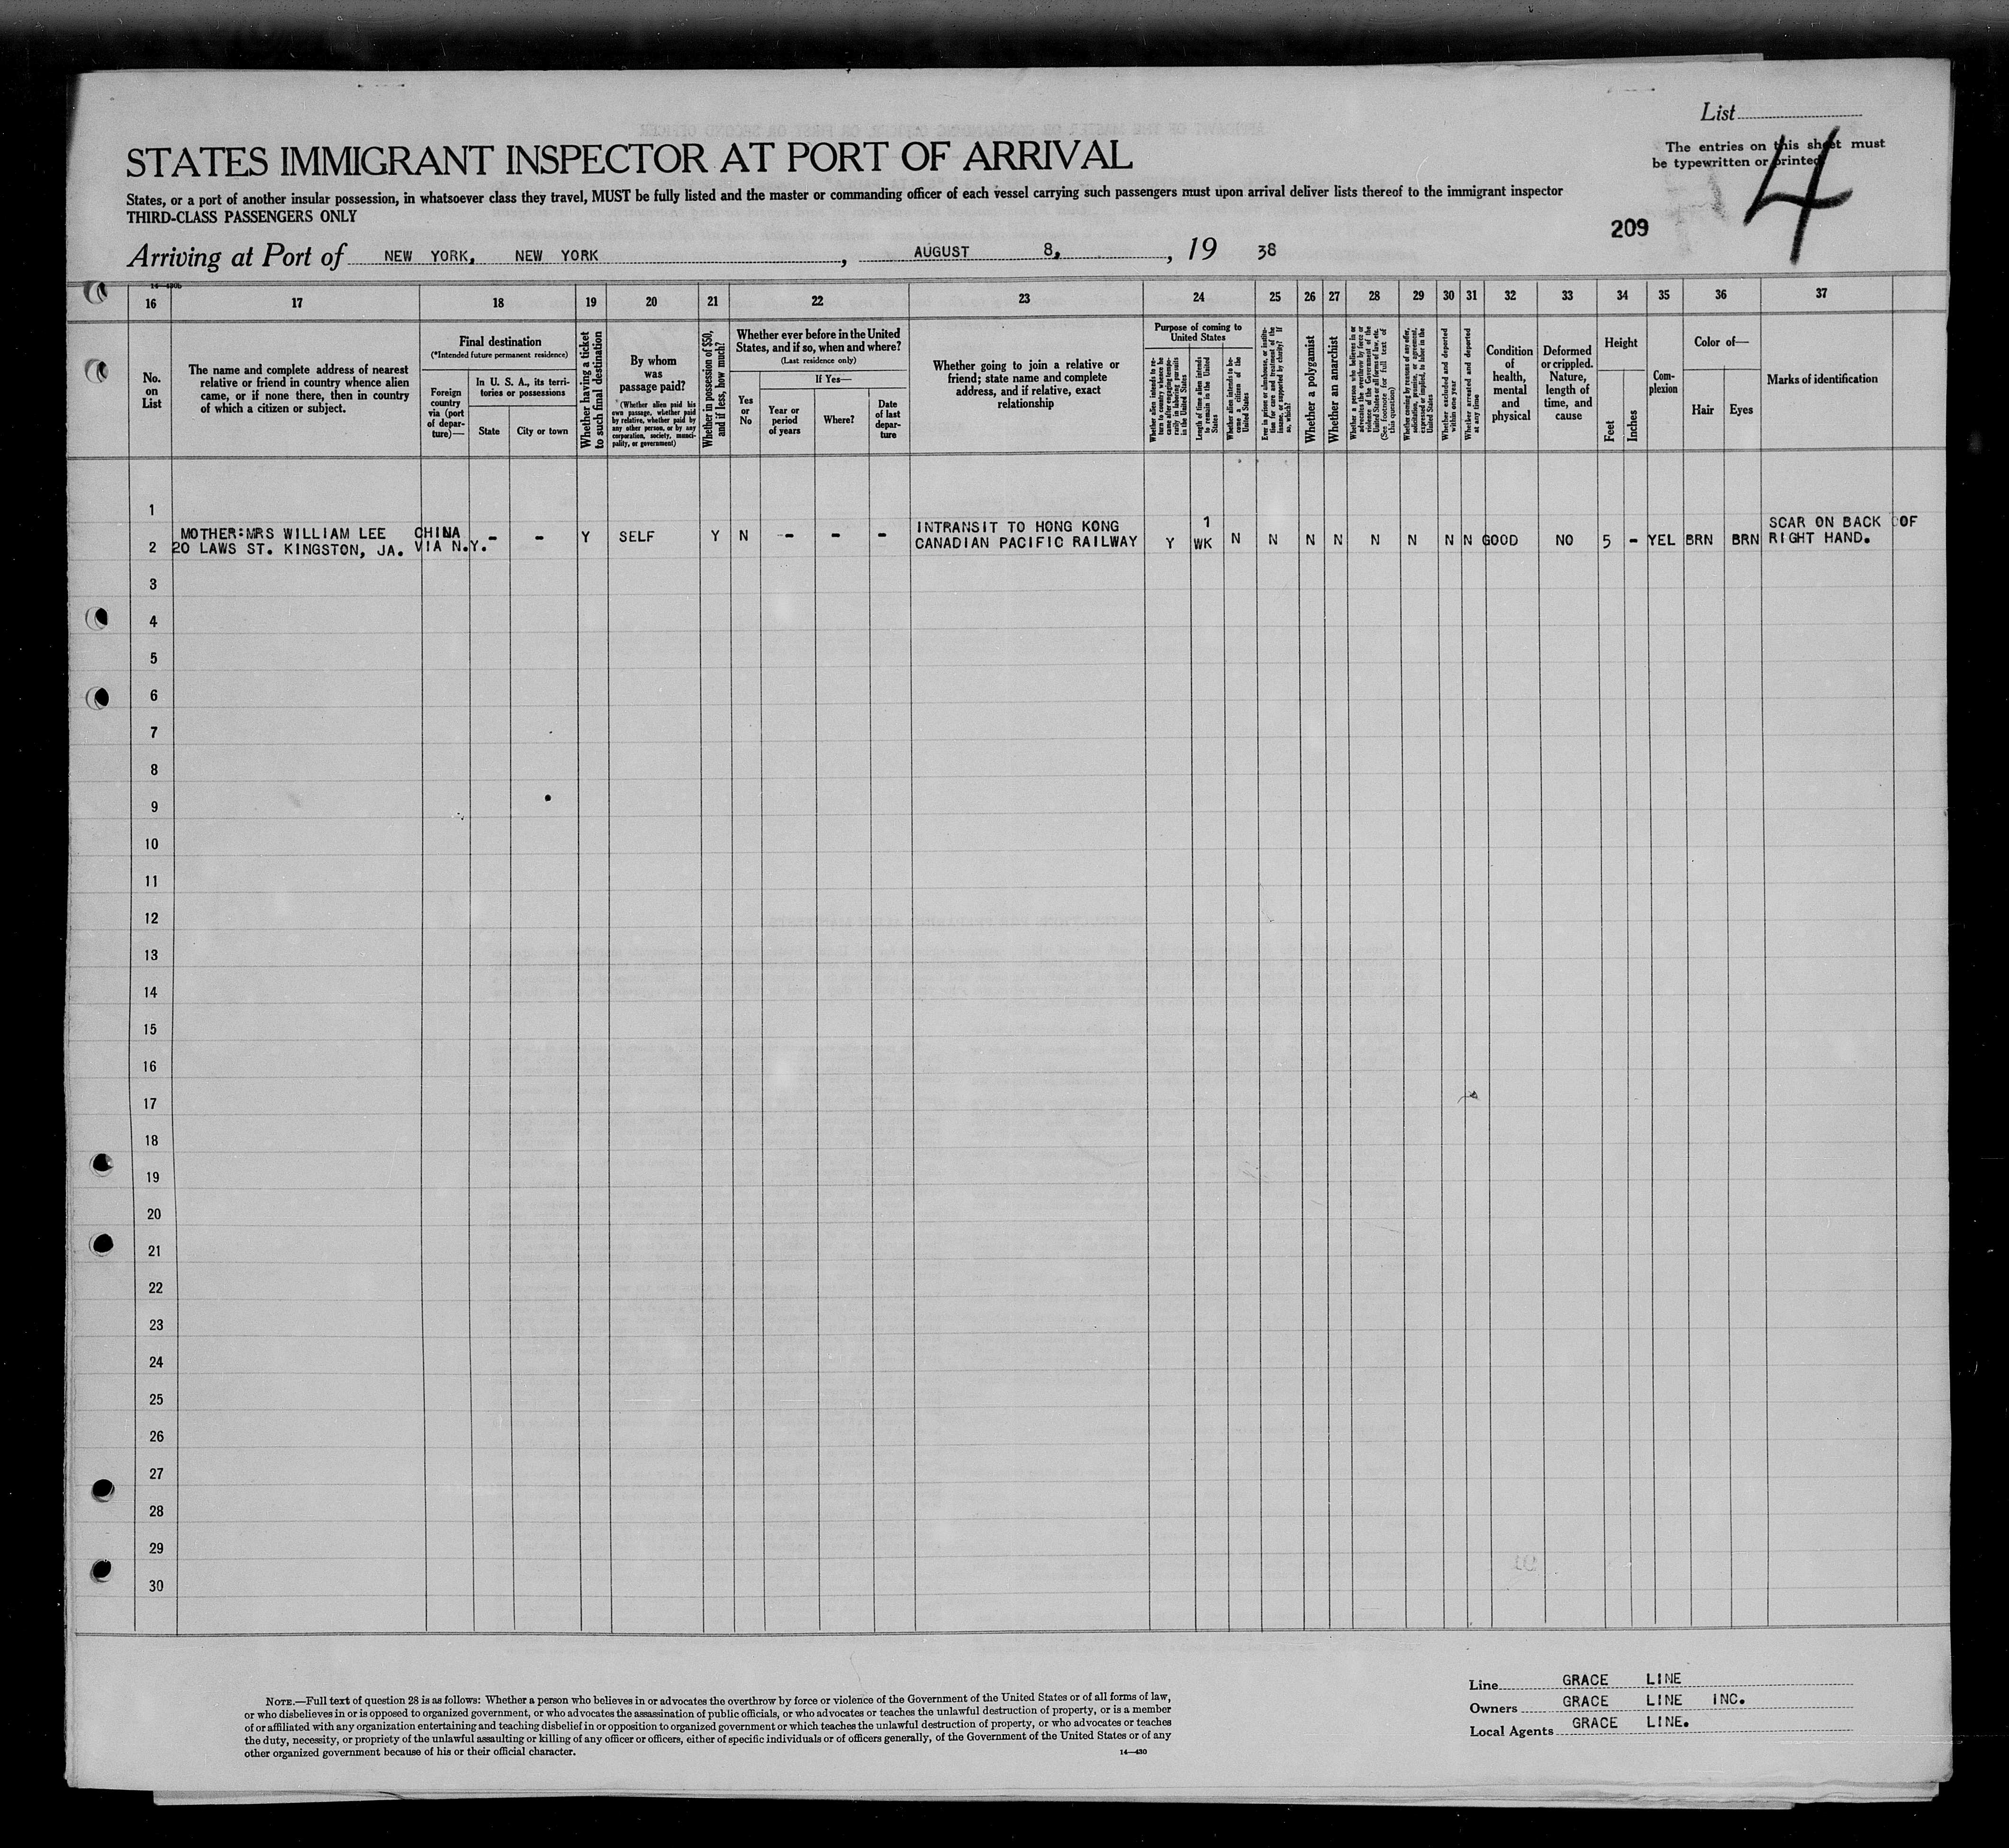 List
The entries on this sheet must
be typewritten or printed
4
STATES IMMIGRANT INSPECTOR AT PORT OF ARRIVAL
States, or a port of another insular possession, in whatsoever class they travel, MUST be fully listed and the master or commanding officer of each vessel carrying such passengers must upon arrival deliver lists thereof to the immigrant inspector
THIRD-CLASS PASSENGERS ONLY
209
Arriving at Port of NEW YORK, NEW YORK, AUGUST 8, , 19 38
14—430b
16 17 18 19 20 21 22 23 24 25 26 27 28 29 30 31 32 33 34 35 36 37
No. on List
The name and complete address of nearest relative or friend in country whence alien came, or if none there, then in country of which a citizen or subject.
Final destination
(*Intended future permanent residence)
Foreign country via (port of departure)—
In U. S. A., its territories or possessions
State
City or town
Whether having a ticket to such final destination
By whom was passage paid?
(Whether alien paid his own passage, whether paid by relative, whether paid by any other person, or by any corporation, society, municipality, or government)
Whether in possession of $50, and if less, how much?
Whether ever before in the United States, and if so, when and where?
(Last residence only)
Yes or No
If Yes—
Year or period of years
Where?
Date of last departure
Whether going to join a relative or friend; state name and complete address, and if relative, exact relationship
Purpose of coming to United States
Whether alien intends to return to country whence he came after engaging temporarily in laboring pursuits in the United States
Length of time alien intends to remain in the United States
Whether alien intends to become a citizen of the United States
Ever in prison or almshouse, or institution for care and treatment of the insane, or supported by charity? If so, which?
Whether a polygamist
Whether an anarchist
Whether a person who believes in or advocates the overthrow by force or violence of the Government of the United States or all forms of law, etc. (See footnote for full text of this question)
Whether coming by reasons of any offer, solicitation, promise, or agreement, expressed or implied, to labor in the United States
Whether excluded and deported within one year
Whether arrested and deported at any time
Condition of health, mental and physical
Deformed or crippled. Nature, length of time, and cause
Height
Feet
Inches
Complexion
Color of—
Hair
Eyes
Marks of identification
1
MOTHER:MRS WILLIAM LEE CHINA INTRANSIT TO HONG KONG 1 SCAR ON BACK OF
2 20 LAWS ST. KINGSTON, JA. VIA N.Y. - - Y SELF Y N - - - CANADIAN PACIFIC RAILWAY Y WK N N N N N N N N GOOD NO 5 - YEL BRN BRN RIGHT HAND.
3
4
5
6
7
8
9
10
11
12
13
14
15
16
17
18
19
20
21
22
23
24
25
26
27
28
29
30
NOTE.—Full text of question 28 is as follows: Whether a person who believes in or advocates the overthrow by force or violence of the Government of the United States or of all forms of law,
or who disbelieves in or is opposed to organized government, or who advocates the assassination of public officials, or who advocates or teaches the unlawful destruction of property, or is a member
of or affiliated with any organization entertaining and teaching disbelief in or opposition to organized government or which teaches the unlawful destruction of property, or who advocates or teaches
the duty, necessity, or propriety of the unlawful assaulting or killing of any officer or officers, either of specific individuals or of officers generally, of the Government of the United States or of any
other organized government because of his or their official character.
14—430
Line GRACE LINE
Owners GRACE LINE INC.
Local Agents GRACE LINE.